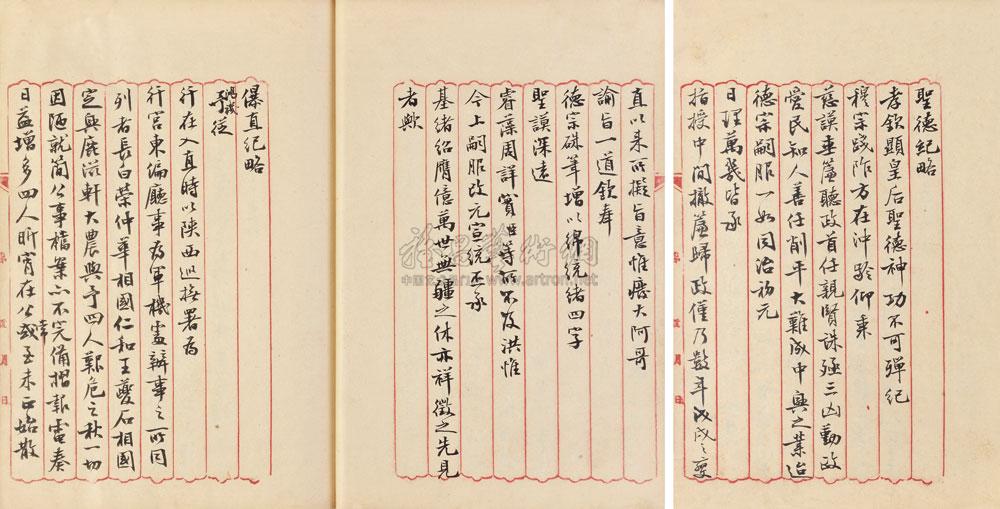 聖德紀略
孝欽顯皇后聖德神功不可殫紀
穆宗踐阼方在沖齡仰秉
慈謨垂簾聽政首任親賢誅殛三凶勤政
愛民知人善任削平大難成中興之業迨
德宗嗣服一如同治初元
日理萬幾皆承
指授中間撤簾歸政僅乃數年戊戌之變
直以來所擬旨意惟廢大阿哥
諭旨一道欽奉
德宗硃筆增以綿統緒四字
聖謨深遠
睿藻周詳實臣等所不及洪惟
今上嗣服改元宣統丕承
基緒紹膺億萬世無疆之休亦祥徵之先見
者歟
儤直紀略
鴻禨予從
行在入直時以陝西巡撫署為
行宮東偏廳事為軍機處辦事之所同
列者長白榮仲華相國仁和王夔石相國
定興鹿滋軒大農與予四人艱危之秋一切
因陋就簡公事檔案亦不完備摺報電奏
日益增多四人昕宵在公常或至未正始散
月日
雅昌藝術網